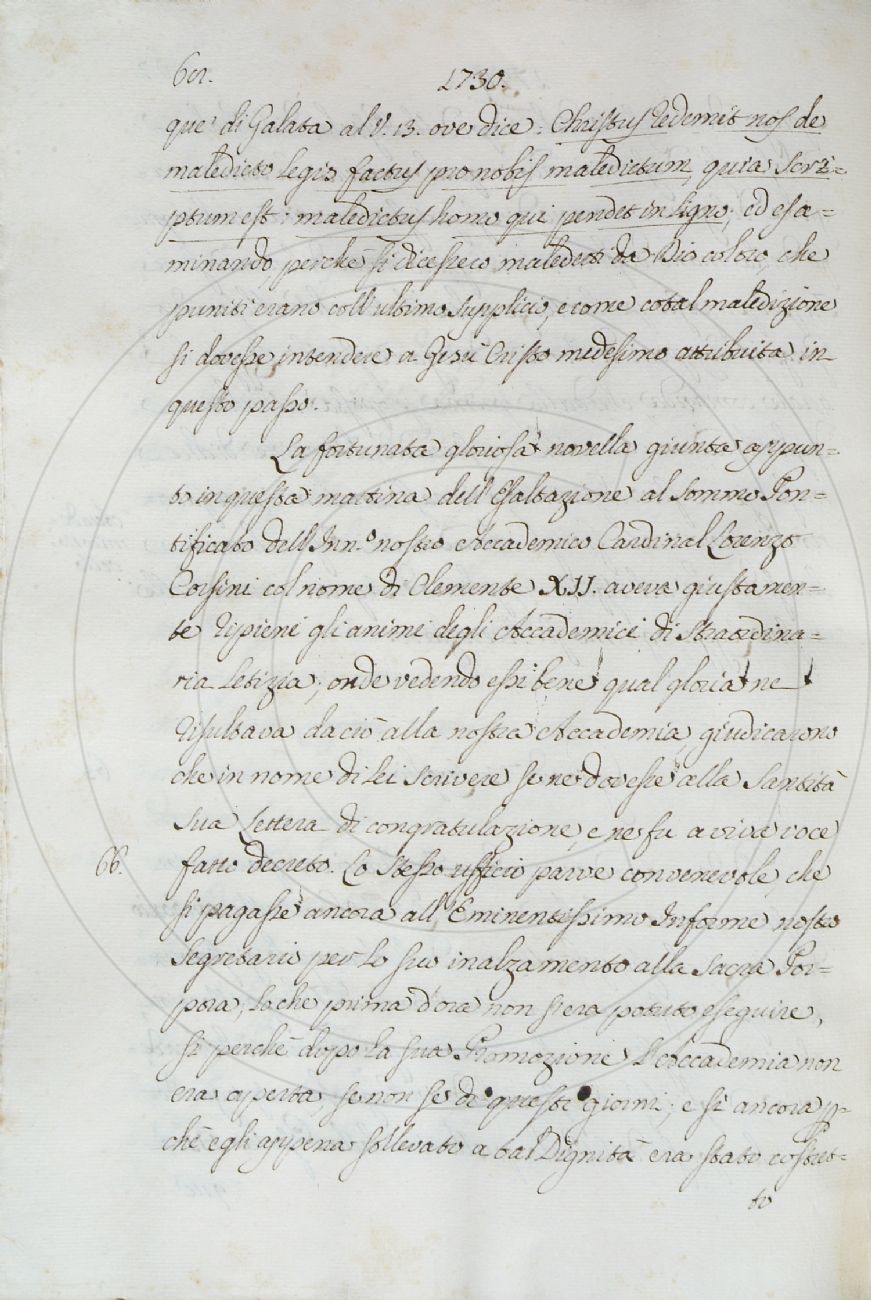 602.
1730.
que' di Galata al V. 13. ove dice: Christus redemit nos de
maledicto legis factus pro nobis maledictum, quia scri=
ptum est: maledictus homo qui pendet in ligno; ed esa=
minando, perchè si dicessero maledetti da Dio coloro, che
puniti erano coll'ultimo supplicio, e come cotal maledizione
si dovesse intendere a Gesù Cristo medesimo attribuita in
questo passo.
La fortunata gloriosa novella giunta appun=
to in questa mattina dell'Esaltazione al Sommo Pon=
tificato dell'Inn.o nostro Accademico Cardinal Lorenzo
Corsini col nome di Clemente XII. aveva giustamen=
te ripieni gli animi degli Accademici di straordina=
ria letizia; onde vedendo essi bene qual gloria ne
risultava da ciò alla nostra Accademia, giudicarono
che in nome di lei scrivere se ne dovesse alla Santità
sua Lettera di congratulazione, e ne fu a viva voce
66.
fatto decreto. Lo stesso ufficio parve convenevole, che
si pagasse ancora all'Eminentissimo Informe nostro
Segretario per lo suo inalzamento alla Sacra Por=
pora, lo che prima d'ora non si era potuto eseguire,
sì perchè dopo la sua Promozione l'Accademia non
era aperta, se non se di questi giorni; e sì ancora p=
chè egli appena sollevato a tal Dignità era stato costret=
to